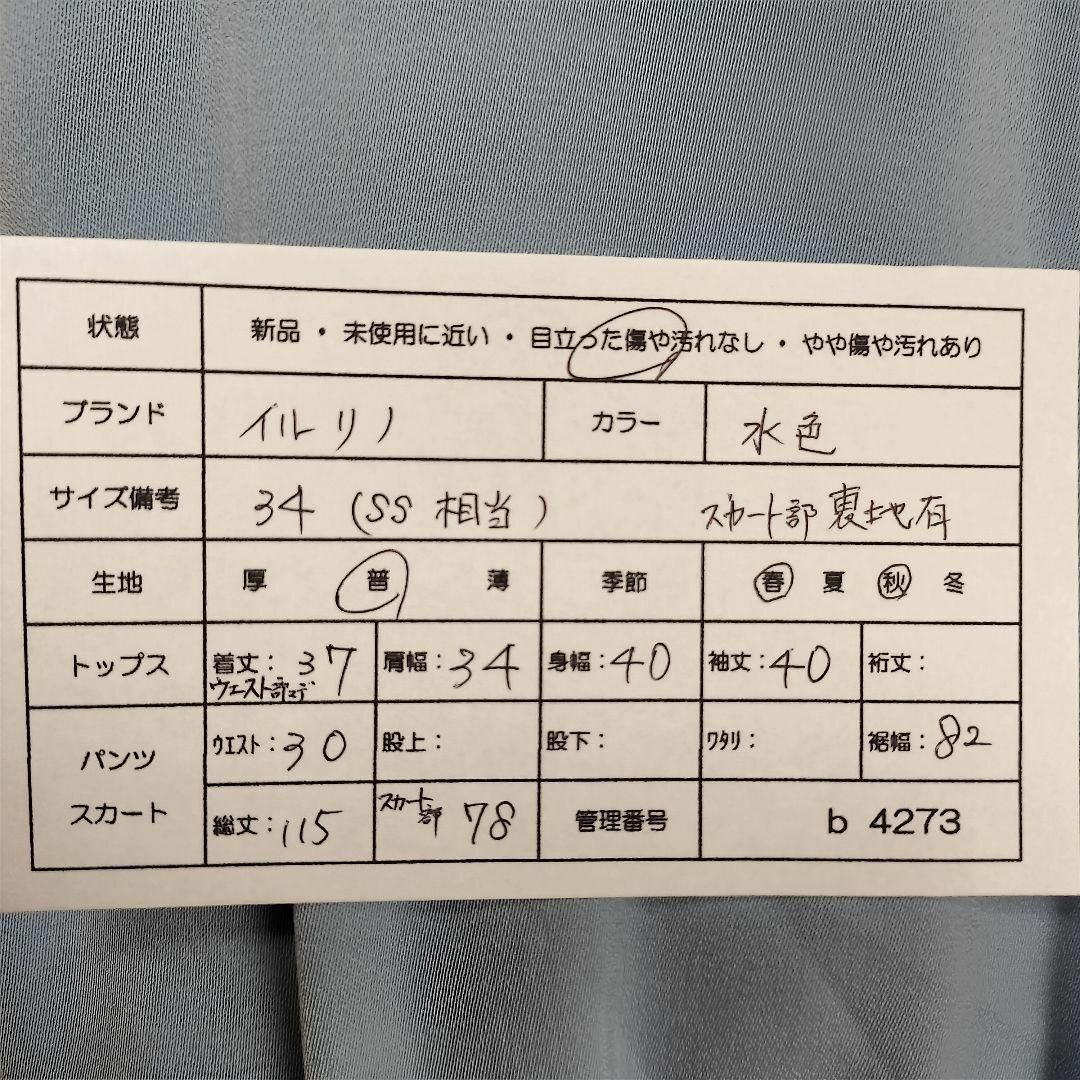 状態 新品 ・ 未使用に近い ・ 目立った傷や汚れなし ・ やや傷や汚れあり
ブランド イルリノ カラー 水色
サイズ備考 34 (SS 相当) スカート部裏地有
生地 厚 普 薄 季節 春 夏 秋 冬
トップス 着丈: 37 肩幅: 34 身幅: 40 袖丈: 40 裄丈:
ウエスト部まで
パンツ ウエスト: 30 股上: 股下: ワタリ: 裾幅: 82
スカート 総丈: 115 スカート部 78 管理番号 b 4273